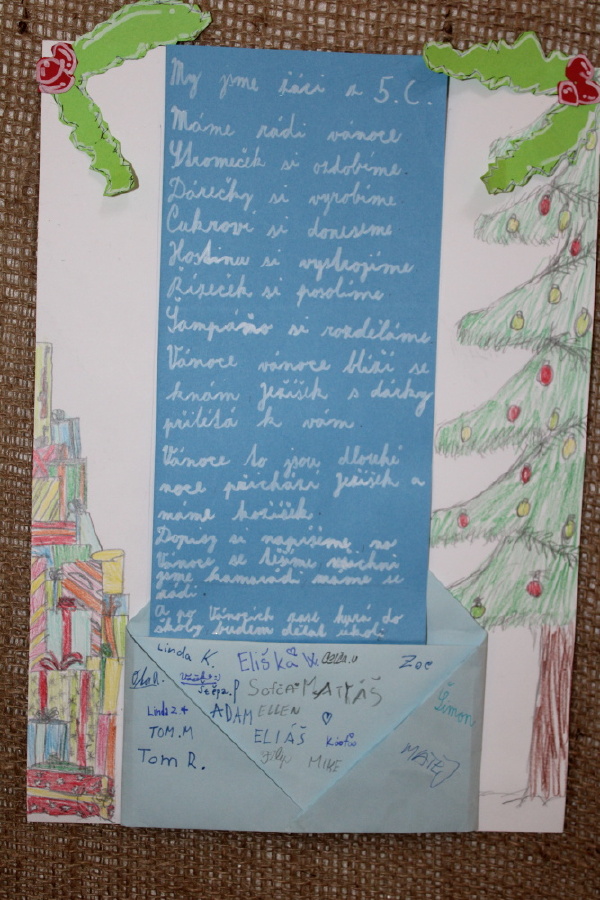 My jsme žáci z 5.C.
Máme rádi vánoce
Stromeček si ozdobíme
Dárečky si vyrobíme
Cukroví si doneseme
Hostinu si vystrojíme
Řízeček si posolíme
Šampáňo si rozděláme
Vánoce vánoce blíží se
knám Ježíšek s dárky
přilétá k vám
Vánoce to jsou dlouhé
noce přichází Ježíšek a
máme kožíšek
Dopisy si napíšeme na
Vánoce se těšíme všichni
jsme kamarádi máme se
rádi
A po Vánocích zase hurá do
školy budem dělat úkoli
Linda K. Eliška V. Zoe
Štěp. P Sofča MATYÁŠ
Linda Z. ADAM ELLEN Šimon
TOM.M ELIÁŠ
Tom R. Filip MIKE MATĚJ